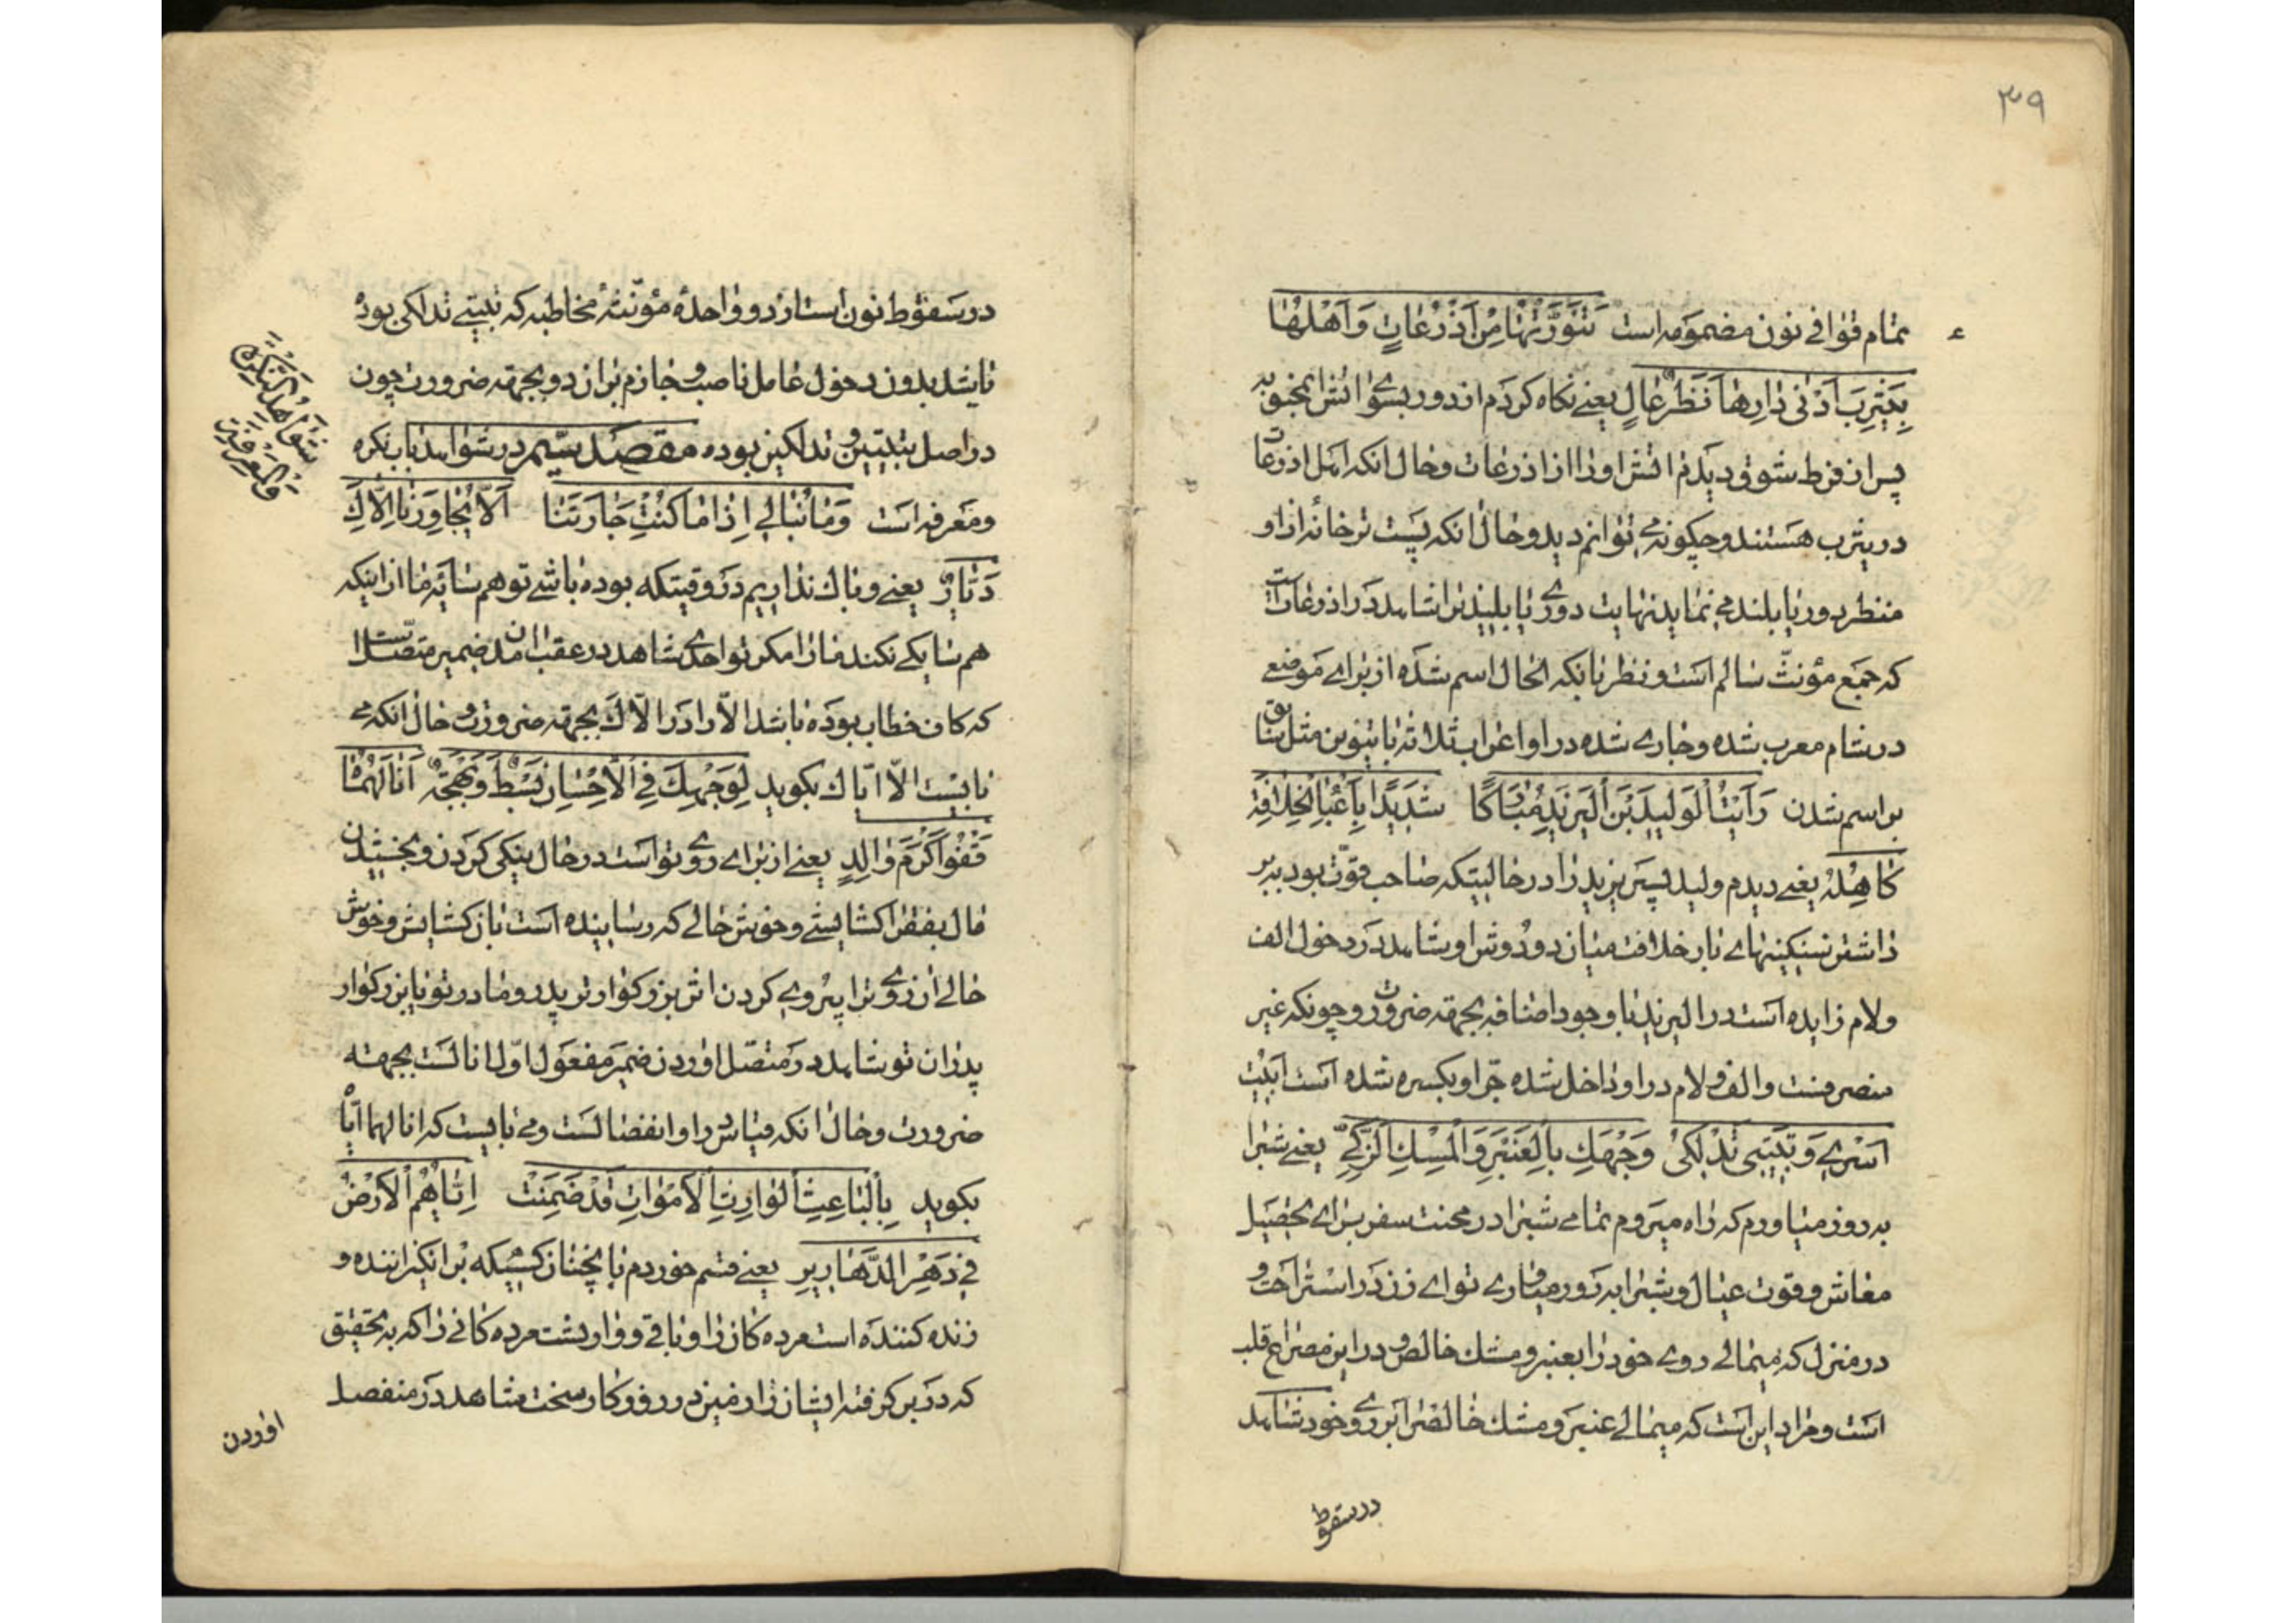 ۳۹
تمام قوافی نون مضمومه است تَنَوَّرْتُهَا مِنْ اَذْرُعَاتٍ وَ اَهْلُهَا
بِيَثْرِبَ اَدْنٰى دٰارِهٰا نَظَرٌ عٰالٍ یعنی نکاه کردم از دور بسوی اتش محبوبه
پس از فرط شوق دیدم اتش او را از اذرعات و حال انکه اهل اذرعات
در یثرب هستند و چکونه می توانم دید و حال انکه پست تر خانه از او
منظر دور یا بلند می نماید نهایت دوری یا بلندیرا شاهد در اذرعات است
که جمع مؤنث سالم است و نظر بانکه الحال اسم شده از برای موضعی
در شام معرب شده و جاری شده در او اعراب ثلاثه با تنوین مثل سابق
بر اسم شدن رَاَیْتُ الْوَلِیدَ بْنَ الْیَزِیدِ مُبٰارَکًا شَدِیدًا بِاَعْبٰاءِ الْخِلاٰفَةِ
کٰاهِلُهُ یعنی دیدم ولید پسر یزید را در حالیتکه صاحب قوت بود ببر
داشتن سنکینیهای بار خلافت میان دو دوش او شاهد در دخول الف
و لام زایده است در الیزید با وجود اضافه بجهته ضرورت و چونکه غیر
منصرفست و الف و لام در او داخل شده جر او بکسره شده است اَبیتُ
اَسْری وَ تَبیتی تَدْلُکی وَجْهَكِ بِالْعَنْبَرِ وَ الْمِسْكِ الزَّکِیِّ یعنی شبرا
به روز میاورم که راه میروم تمامی شبرا در محنت سفر برای تحصیل
معاش و قوت عیال و شبرا به روز میاری تو ای زن در استراحت و
در منزل که میمالی روی خود را بعنبر و مشك خالص و در این مصراع قلب
است و مراد این است که میمالی عنبر و مشك خالص را بر روی خود شاهد
در سقوط
در سقوط نون است از دو واحدهٔ مؤنثهٔ مخاطبه که تبیتی تدلکی بوده
باشد بدون دخول عامل ناصب و جازم بر ان دو بجهته ضرورت چون
در اصل تبیتین و تدلکین بوده مقصد سیم در شواهد باب نکره
و معرفه است وَ مٰا نُبٰالی اِذٰا مٰا کُنْتِ جٰارَتَنٰا اَلاّٰ یُجٰاوِرَنٰا اِلاّٰكِ
دَیّٰارٌ یعنی و باك نداریم در وقتیکه بوده باشی تو هم سایهٔ ما از اینکه
هم سایکی نکند ما را مکر تو احدی شاهد در عقب امدن ضمیر متصل است
که کاف خطاب بوده باشد الاّ را در الاّك بجهته ضرورت و حال انکه می
بایست الاّ ایّاك بکوید لِوَجْهِكَ فِی الاِْحْسٰانِ بَسْطٌ وَ بَهْجَةٌ اَنٰالَهُمٰاهُ
قَفْوُ اَکْرَمِ وٰالِدٍ یعنی از برای روی تو است در حال نیکی کردن و بخشیدن
مال بفقرا کشایشی و خوش حالی که رسانیده است بان کشایش و خوش
حالی ان روی ترا پیروی کردن اثر بزرکوارتر پدر و مادر تو یا بزرکوار
پدران تو شاهد در متصل اوردن ضمیر مفعول اول انالست بجهته
ضرورت و حال انکه قیاس در او انفصالست و می بایست که انالهما ایاه
بکوید بِالْبٰاعِثِ الْوٰارِثِ الاَْمْوٰاتِ قَدْ ضَمِنَتْ اِیّٰاهُمُ الاَْرْضُ
فی دَهْرِ الدَّهٰاریرِ یعنی قسم خوردم بانچنان کسیکه بر انکیزاننده و
زنده کننده است مرده کان را و باقی و وارثست مرده کانی را که به تحقیق
که در بر کرفته ایشان را زمین در روزکار سخت شاهد در منفصل
اوردن
شَوٰاهِدُ النَّکِرَةِ
وَ الْمَعْرِفَةِ